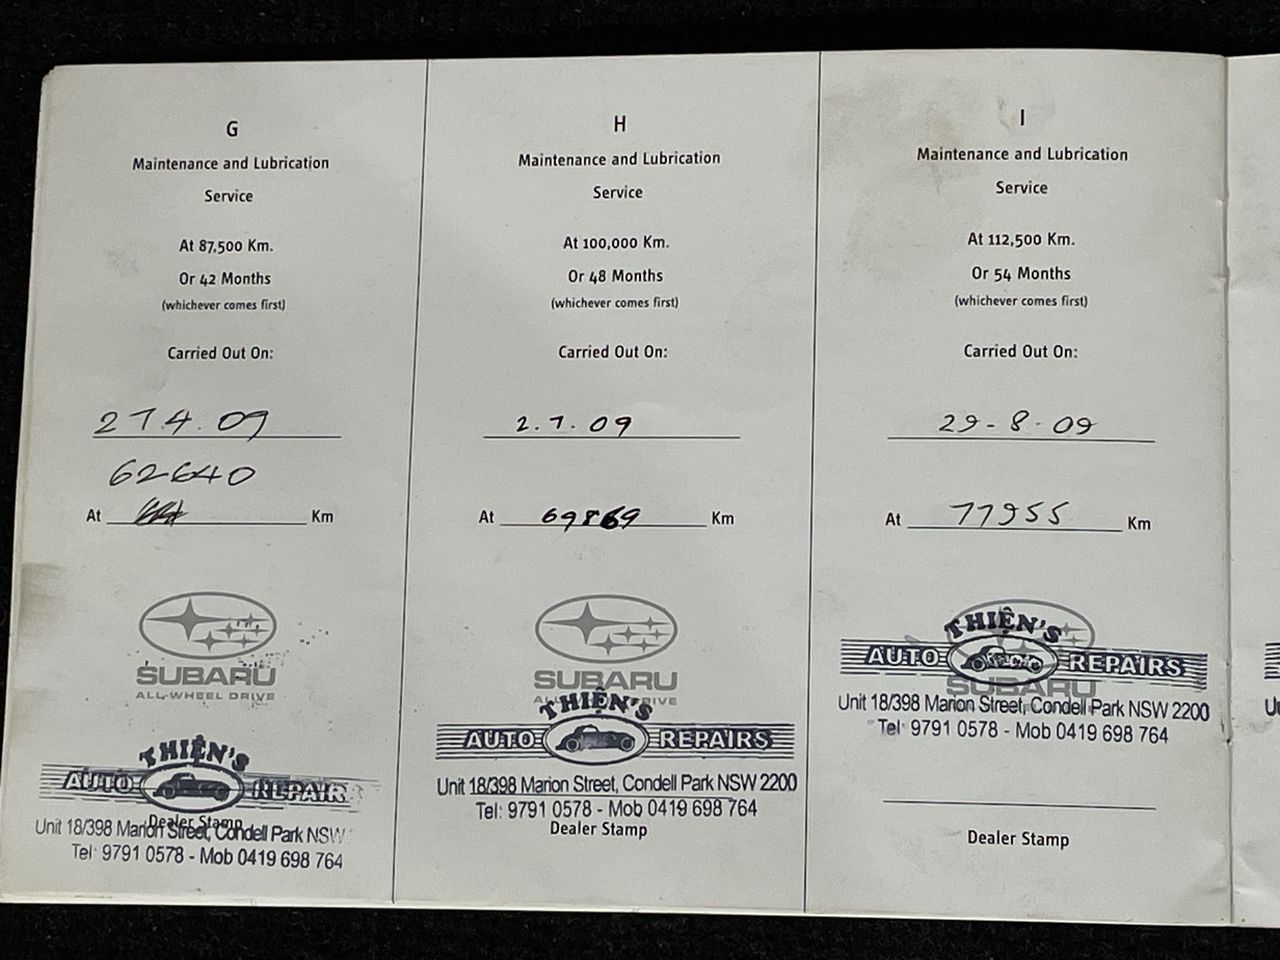 G
Maintenance and Lubrication
Service
At 87,500 Km.
Or 42 Months
(whichever comes first)
Carried Out On:
27.4.09
62640
At Km
SUBARU
ALL-WHEEL DRIVE
THIỆN'S
AUTO REPAIRS
Dealer Stamp
Unit 18/398 Marion Street, Condell Park NSW
Tel: 9791 0578 - Mob 0419 698 764
H
Maintenance and Lubrication
Service
At 100,000 Km.
Or 48 Months
(whichever comes first)
Carried Out On:
2.7.09
At 69869 Km
SUBARU
ALL-WHEEL DRIVE
THIỆN'S
AUTO REPAIRS
Unit 18/398 Marion Street, Condell Park NSW 2200
Tel: 9791 0578 - Mob 0419 698 764
Dealer Stamp
I
Maintenance and Lubrication
Service
At 112,500 Km.
Or 54 Months
(whichever comes first)
Carried Out On:
29-8-09
At 77955 Km
THIỆN'S
AUTO REPAIRS
SUBARU
Unit 18/398 Marion Street, Condell Park NSW 2200
Tel: 9791 0578 - Mob 0419 698 764
Dealer Stamp